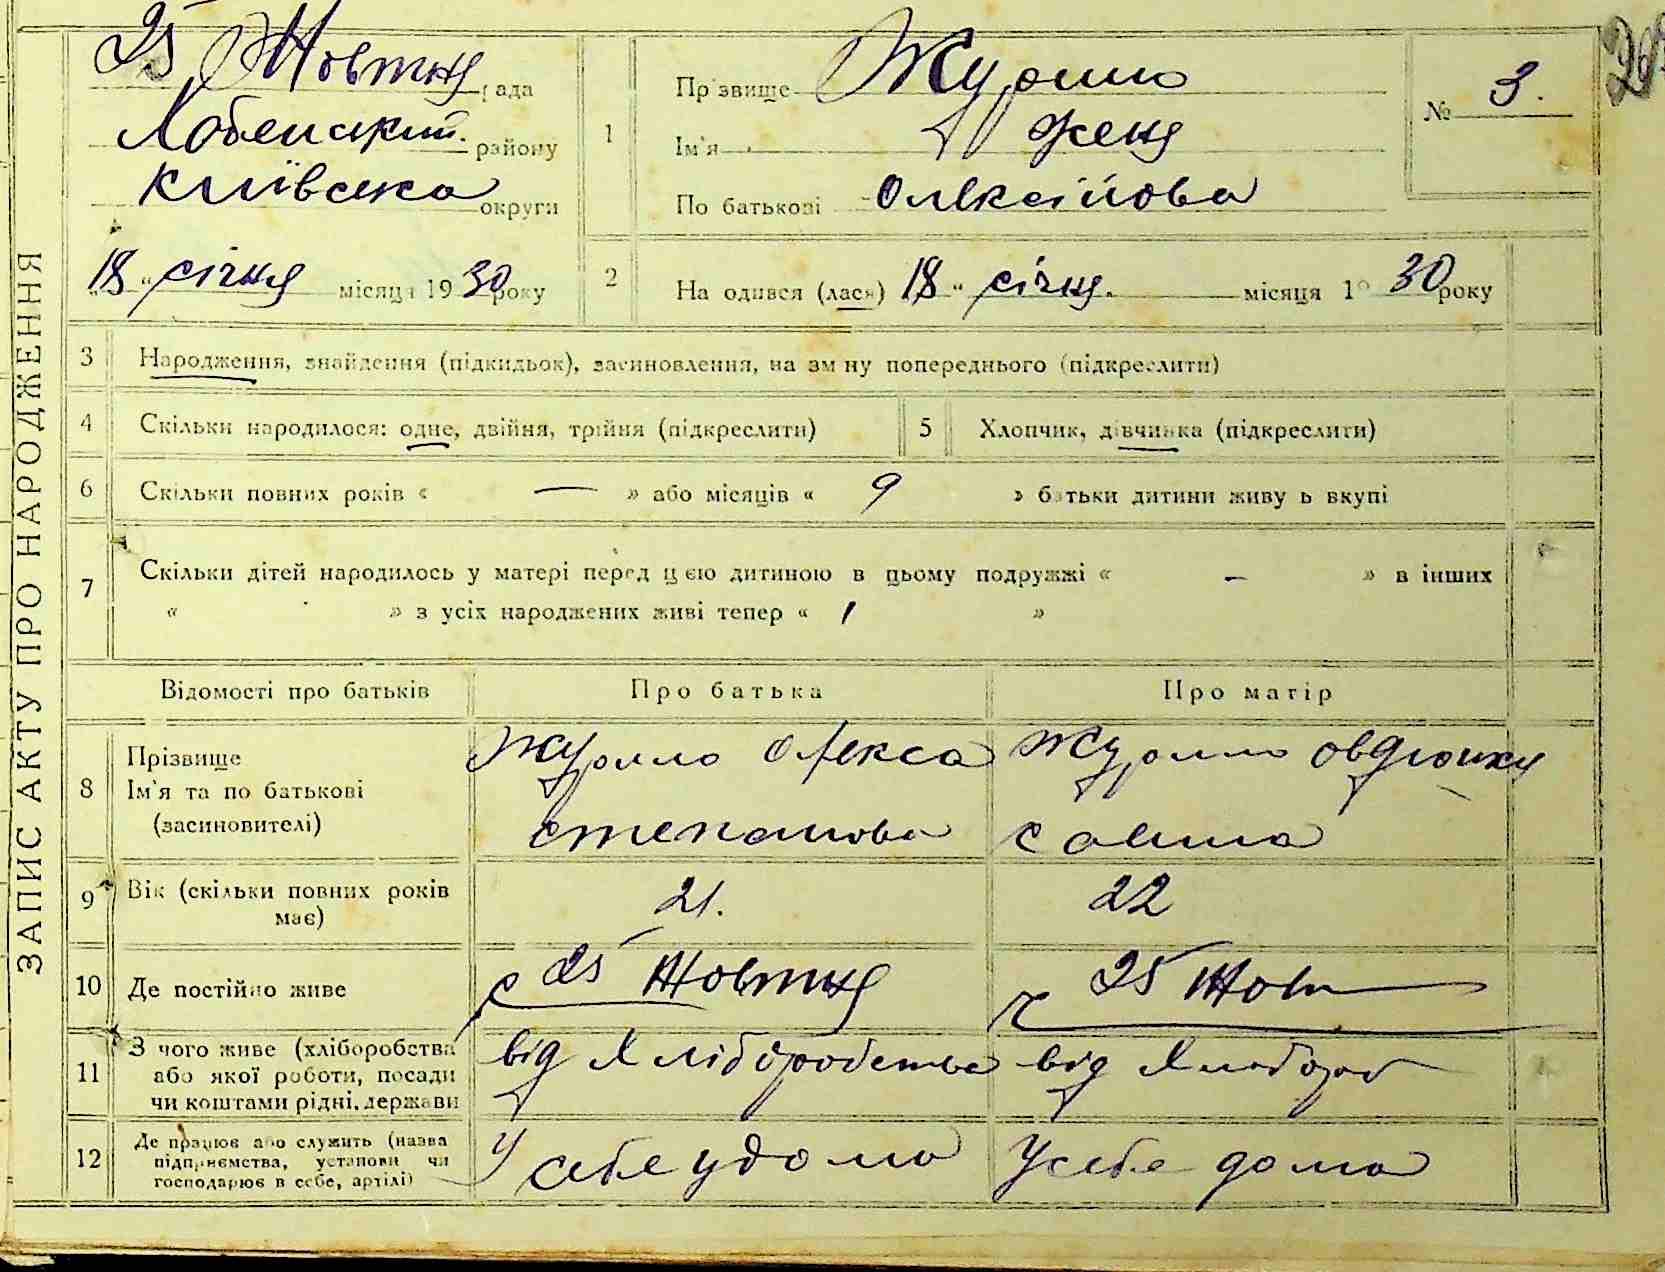 ЗАПИС АКТУ ПРО НАРОДЖЕННЯ
25 Жовтня рада
району
Київська округи
"18" січня місяця 1930 року
1
Прізвище
Ім'я Женя
По батькові Олексійова
№ 3.
2
На одився (лася) 18 " січня. місяця 1930 року
3 Народження, знайдення (підкидьок), засиновлення, на зм ну попереднього (підкреслити)
4 Скільки народилося: одне, двійня, трійня (підкреслити)
5 Хлопчик, дівчинка (підкреслити)
6 Скільки повних років « — » або місяців « 9 » батьки дитини живу ь вкупі
7 Скільки дітей народилось у матері перед цією дитиною в цьому подружжі « – » в інших
« » з усіх народжених живі тепер « 1 »
Відомості про батьків
Про батька
Про матір
8 Прізвище
Ім'я та по батькові
(засиновителі)
Олекса
степанова
9 Вік (скільки повних років
має)
21.
22
10 Де постійно живе
с 25 Жовтня
с 25 Жовт
11 З чого живе (хліборобства
або якої роботи, посади
чи коштами рідні, держави
від Хліборобства
від Хлібороб
12 Де працює або служить (назва
підприємства, установи чи
господарює в себе, артілі)
У себе удома
У себе дома